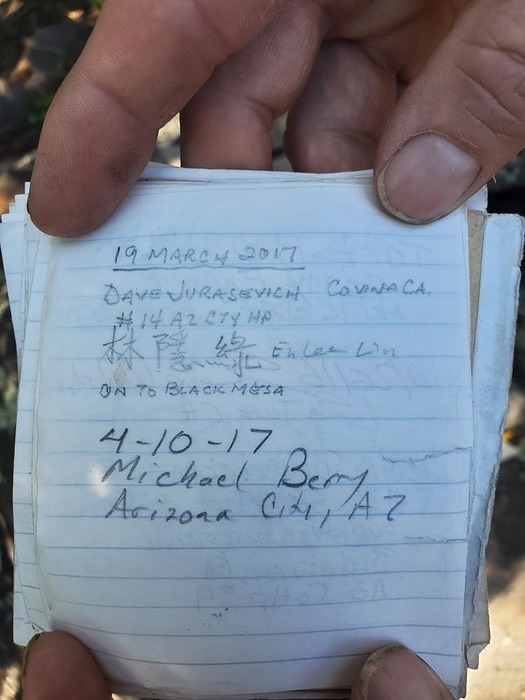 19 MARCH 2017
DAVE JURASEVICH COVINA CA.
#14 AZ CTY HP
林 隱 En Lee Lin
ON TO BLACK MESA
4-10-17
Michael Berry
Arizona City, AZ